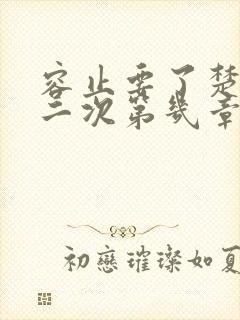 容止要了楚
二次第几章
初戀璀璨如夏